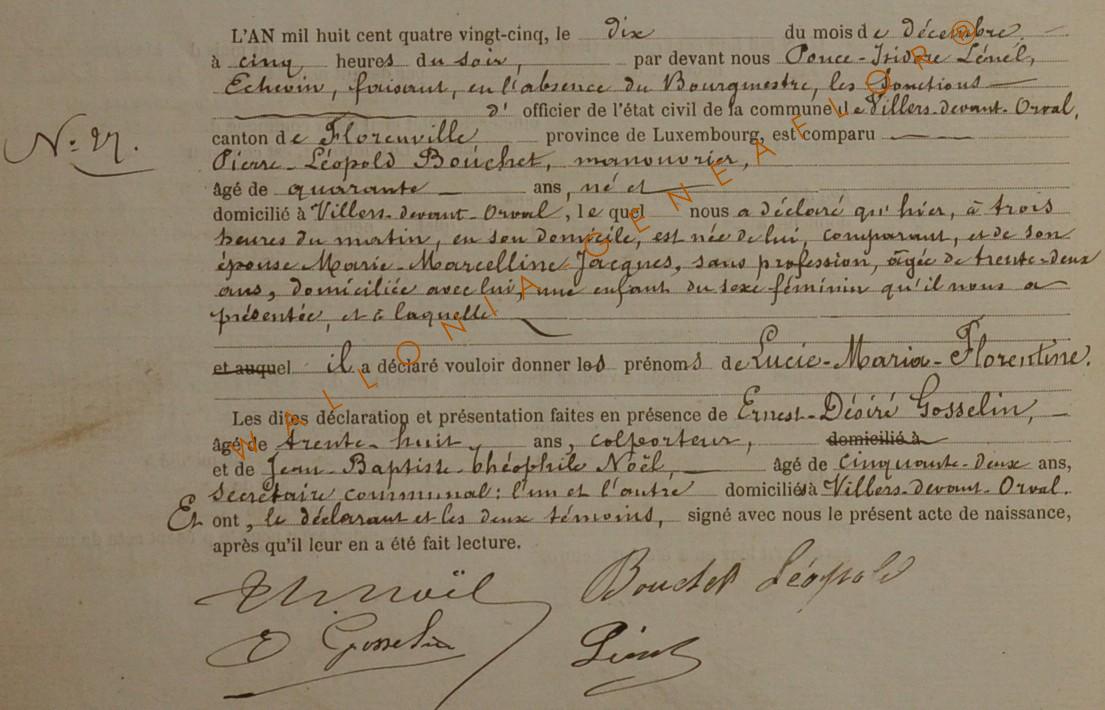 L'AN mil huit cent quatre vingt-cinq, le dix du mois de décembre.
à cinq heures du soir, par devant nous Ponce-Isidore Lénel,
Echevin, faisant, en l'absence du Bourgmestre, les fonctions
d'officier de l'état civil de la commune de Villers-devant-Orval,
N° 27.
canton de Florenville province de Luxembourg, est comparu
Pierre-Léopold Bouchet, manouvrier,
âgé de quarante ans, né et
domicilié à Villers-devant-Orval, lequel nous a déclaré qu'hier, à trois
heures du matin, en son domicile, est née de lui, comparant, et de son
épouse Marie-Marcelline Jacques, sans profession, âgée de trente-deux
ans, domiciliée avec lui, une enfant du sexe féminin qu'il nous a
présentée, et à laquelle
et auquel il a déclaré vouloir donner les prénoms de Lucie-Maria-Florentine.
Les dites déclaration et présentation faites en présence de Ernest-Désiré Gosselin,
âgé de trente-huit ans, colporteur, domicilié à
et de Jean-Baptiste-théophile Noël, âgé de cinquante-deux ans,
secrétaire communal: l'un et l'autre domiciliés à Villers-devant-Orval.
Et ont, le déclarant et les deux témoins, signé avec nous le présent acte de naissance,
après qu'il leur en a été fait lecture.
Th. Noël Bouchet Léopold
E Gosselin Lénel
WALLONIA-GENEAFLOR®